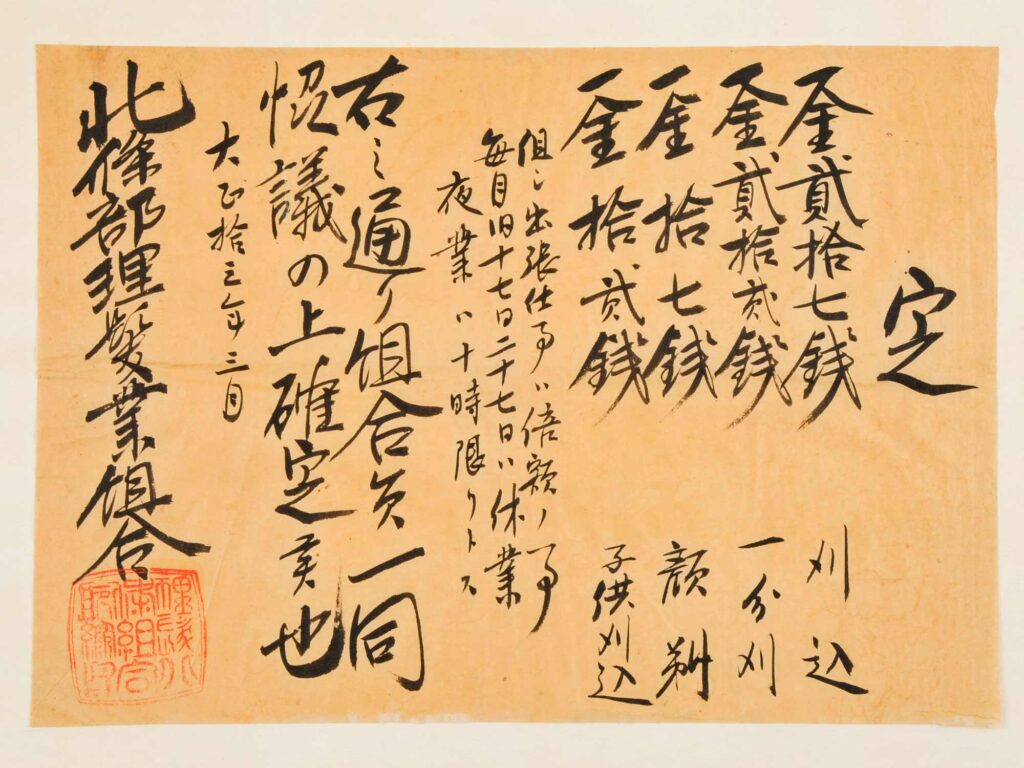 定
一金貳拾七銭 刈込
一金貳拾貳銭 一分刈
一金拾七銭 顔剃
一金拾貳銭 子供刈込
但シ出張仕事ハ倍額ノ事
毎月旧十七日二十七日ハ休業
夜業ハ十時限リトス
右之通リ組合員一同
協議の上確定候也
大正拾三年三月
北條部理髪業組合